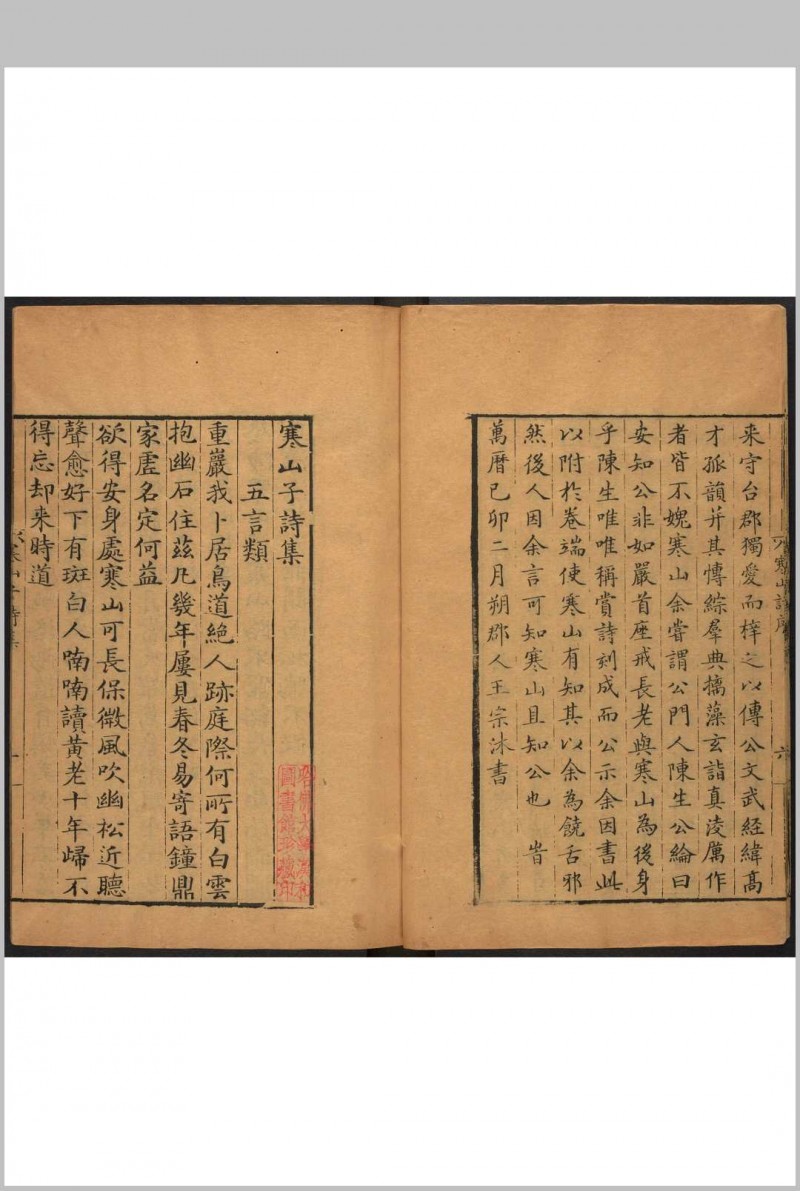 來守台郡獨愛而梓之以傳公文武經緯高
才孤韻并其博綜羣典摛藻玄詣真淩厲作
者皆不媿寒山余嘗謂公門人陳生公綸曰
安知公非如嚴首座戒長老與寒山為後身
乎陳生唯唯稱賞詩刻成而公示余因書此
以附於卷端使寒山有知其以余為饒舌邪
然後人因余言可知寒山且知公也　旹
萬曆己卯二月朔郡人王宗沐書
寒山子詩集
五言類
重巖我卜居鳥道絕人跡庭際何所有白雲
抱幽石住茲凡幾年屢見春冬易寄語鐘鼎
家虛名定何益
欲得安身處寒山可長保微風吹幽松近聽
聲愈好下有斑白人喃喃讀黃老十年歸不
得忘却來時道